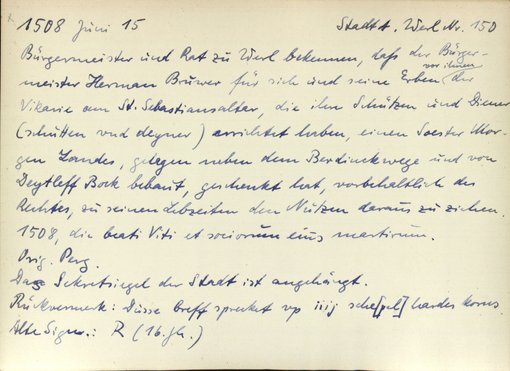 1508 Juni 15 Stadt A. Werl Nr. 150
Bürgermeister und Rat zu Werl bekennen, daß der Bürger-
vor ihnen
meister Herman Bruwer für sich und seine Erben der
Vikarie am St. Sebastiansaltar, die ihn Schützen und Diener
(schutten vnd deyner) errichtet haben, einen Soester Mor-
gen Landes, gelegen neben dem Berdinckwege und von
Deytleff Bork bebaut, geschenkt hat, vorbehaltlich des
Rechtes, zu seinen Lebzeiten den Nutzen daraus zu ziehen.
1508, die beati Viti et sociorum eius martirum.
Orig. Perg.
Das Sekretsiegel der Stadt ist angehängt.
Rückvermerk: Düsse breff spreket vp iiij sche[pel] hardes korns.
Alte Sign.: R (16. Jh.)